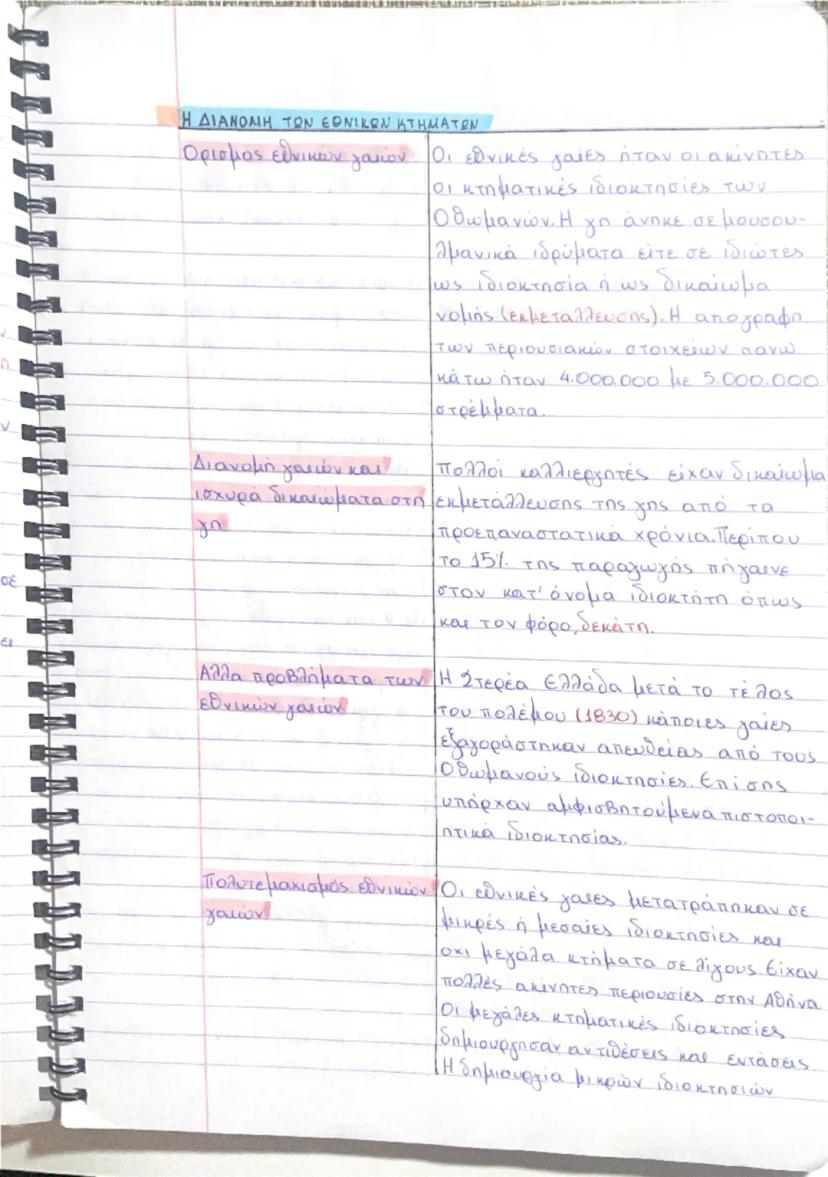 Η ΔΙΑΝΟΜΗ ΤΩΝ ΕΘΝΙΚΩΝ ΚΤΗΜΑΤΩΝ
Ορισμος εθνικών γαιών
Οι εθνικές γαίες ήταν οι ακίνητες
οι κτηματικές ιδιοκτησίες των
Οθωμανών. Η γη άνηκε σε μουσου-
λμανικά ιδρύματα είτε σε ιδιώτες
ως ιδιοκτησία ή ως δικαίωμα
νομής (εκμετάλλευσης). Η απογραφή
των περιουσιακών στοιχείων πανω
κάτω ήταν 4.000.000 με 5.000.000
στρέμματα.
Διανομή γαιών και
ισχυρά δικαιώματα στη
γη
Πολλοί καλλιεργητές είχαν δικαίωμα
εκμετάλλευσης της γης από τα
προεπαναστατικά χρόνια. Περίπου
το 15% της παραγωγής πήγαινε
στον κατ' όνομα ιδιοκτήτη όπως
και τον φόρο, δεκάτη.
Αλλα προβλήματα των
εθνικών γαιών
Η Στερέα Ελλάδα μετά το τέλος
του πολέμου (1830) κάποιες γαίες
εξαγοράστηκαν απευθείας από τους
Οθωμανούς ιδιοκτησίες. Επίσης
υπήρχαν αμφισβητούμενα πιστοποι-
ητικά ιδιοκτησίας.
Πολυτεμαχισμός εθνικών
γαιών
Οι εθνικές γαιες μετατράπηκαν σε
μικρές ή μεσαίες ιδιοκτησίες και
οχι μεγάλα κτήματα σε λίγους. Είχαν
πολλές ακίνητες περιουσίες στην Αθήνα
Οι μεγάλες κτηματικές ιδιοκτησίες
δημιουργησαν αντιθέσεις και εντάσεις
Η δημιουργία μικρών ιδιοκτησιών